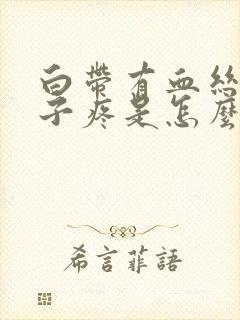 白帶有血絲
子疼是怎麼
希言菲語